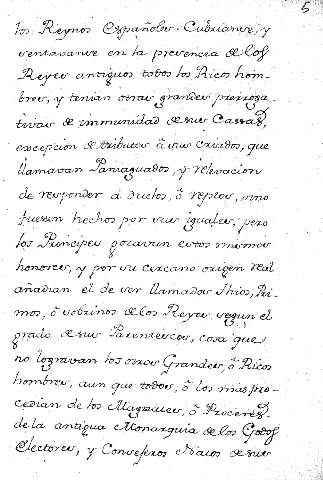 5
los Reynos Españoles. Cubrianse, y
sentavanse en la presencia de los
Reyes antiguos todos los Ricos hom-
bres, y tenian otras grandes prerroga-
tivas de immunidad de sus Cassas,
excepcion de tributos â sus criados, que
llamavan Paniaguados, y relevacion
de responder â duelos, ô reptos, sino
fuessen hechos por sus iguales, pero
los Principes gozavan estos mismos
honores, y por su cercano origen real
añadian el de ser llamados thios, Pri-
mos, ô sobrinos de los Reyes segun el
grado de sus Parentescos, cosa que
no logravan los otros Grandes, ô Ricos
hombres, aun que todos, ô los mas pro-
cedian de los Magnates, ô Proceres
de la antigua Monarquia de los Godos
Electores, y Consejeros Natos de sus